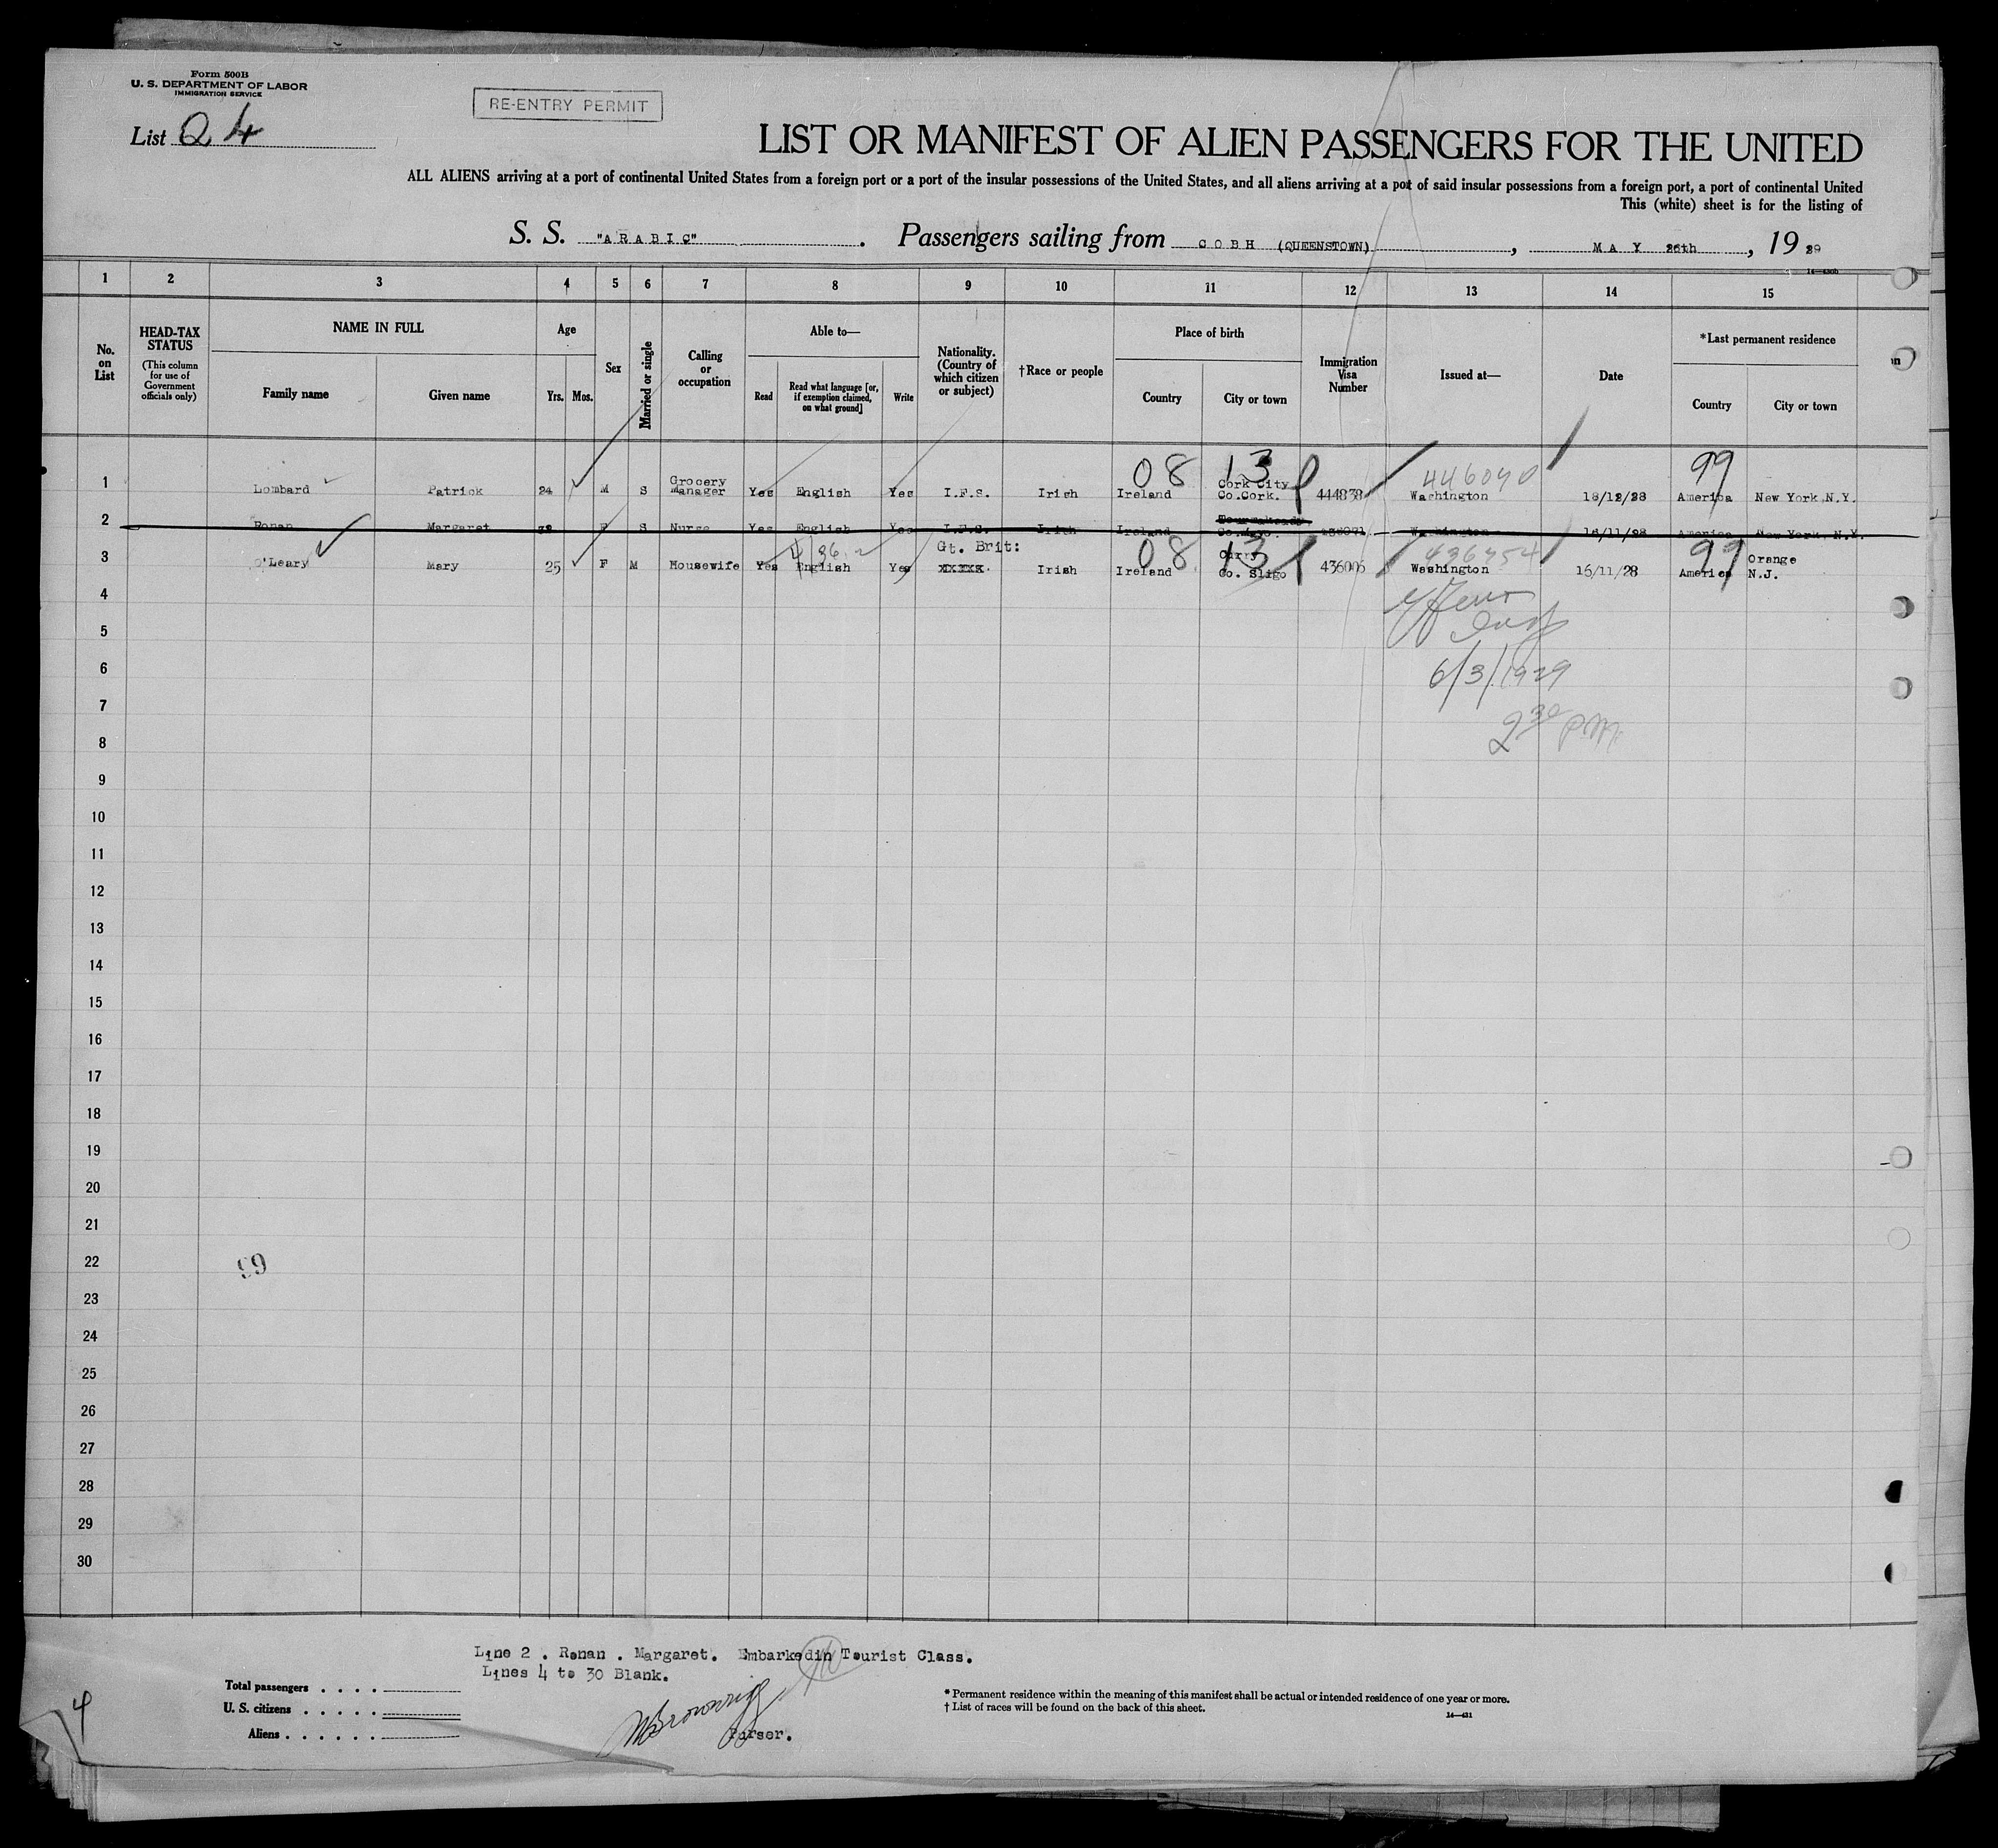 Form 500B
U. S. DEPARTMENT OF LABOR
IMMIGRATION SERVICE
RE-ENTRY PERMIT
List Q 4
LIST OR MANIFEST OF ALIEN PASSENGERS FOR THE UNITED
ALL ALIENS arriving at a port of continental United States from a foreign port or a port of the insular possessions of the United States, and all aliens arriving at a port of said insular possessions from a foreign port, a port of continental United
This (white) sheet is for the listing of
S. S. "ARABIC" . Passengers sailing from COBH (QUEENSTOWN), MAY 26th, 19 29
1 2 3 4 5 6 7 8 9 10 11 12 13 14 15
No. on List
HEAD-TAX STATUS
(This column for use of Government officials only)
NAME IN FULL
Family name Given name
Age
Yrs. Mos.
Sex
Married or single
Calling or occupation
Able to—
Read Read what language [or, if exemption claimed, on what ground] Write
Nationality. (Country of which citizen or subject)
†Race or people
Place of birth
Country City or town
Immigration Visa Number
Issued at—
Date
*Last permanent residence
Country City or town
08 13 446040 99
1 Lombard Patrick 24 M S Grocery Manager Yes English Yes I.F.S. Irish Ireland Cork City Co.Cork. 444878 Washington 18/12/28 America New York N.Y.
2 Ronan Margaret F S Nurse Yes English Yes I.F.S. Irish Ireland Co.Mayo. Washington 16/11/28 America New York, N.Y.
4/36 08 13 99
3 O'Leary Mary 25 F M Housewife Yes English Yes Gt. Brit: Irish Ireland Curry Co. Sligo 436006 Washington 15/11/28 America Orange N.J.
4
5
6
6/3/1929
7
2 30 P.M.
8
9
10
11
12
13
14
15
16
17
18
19
20
21
22
23
24
25
26
27
28
29
30
Line 2 . Ronan . Margaret. Embarked in Tourist Class.
Lines 4 to 30 Blank.
Total passengers . . . .
U. S. citizens . . . . .
Aliens . . . . . .
4
Purser.
* Permanent residence within the meaning of this manifest shall be actual or intended residence of one year or more.
† List of races will be found on the back of this sheet.
14—431